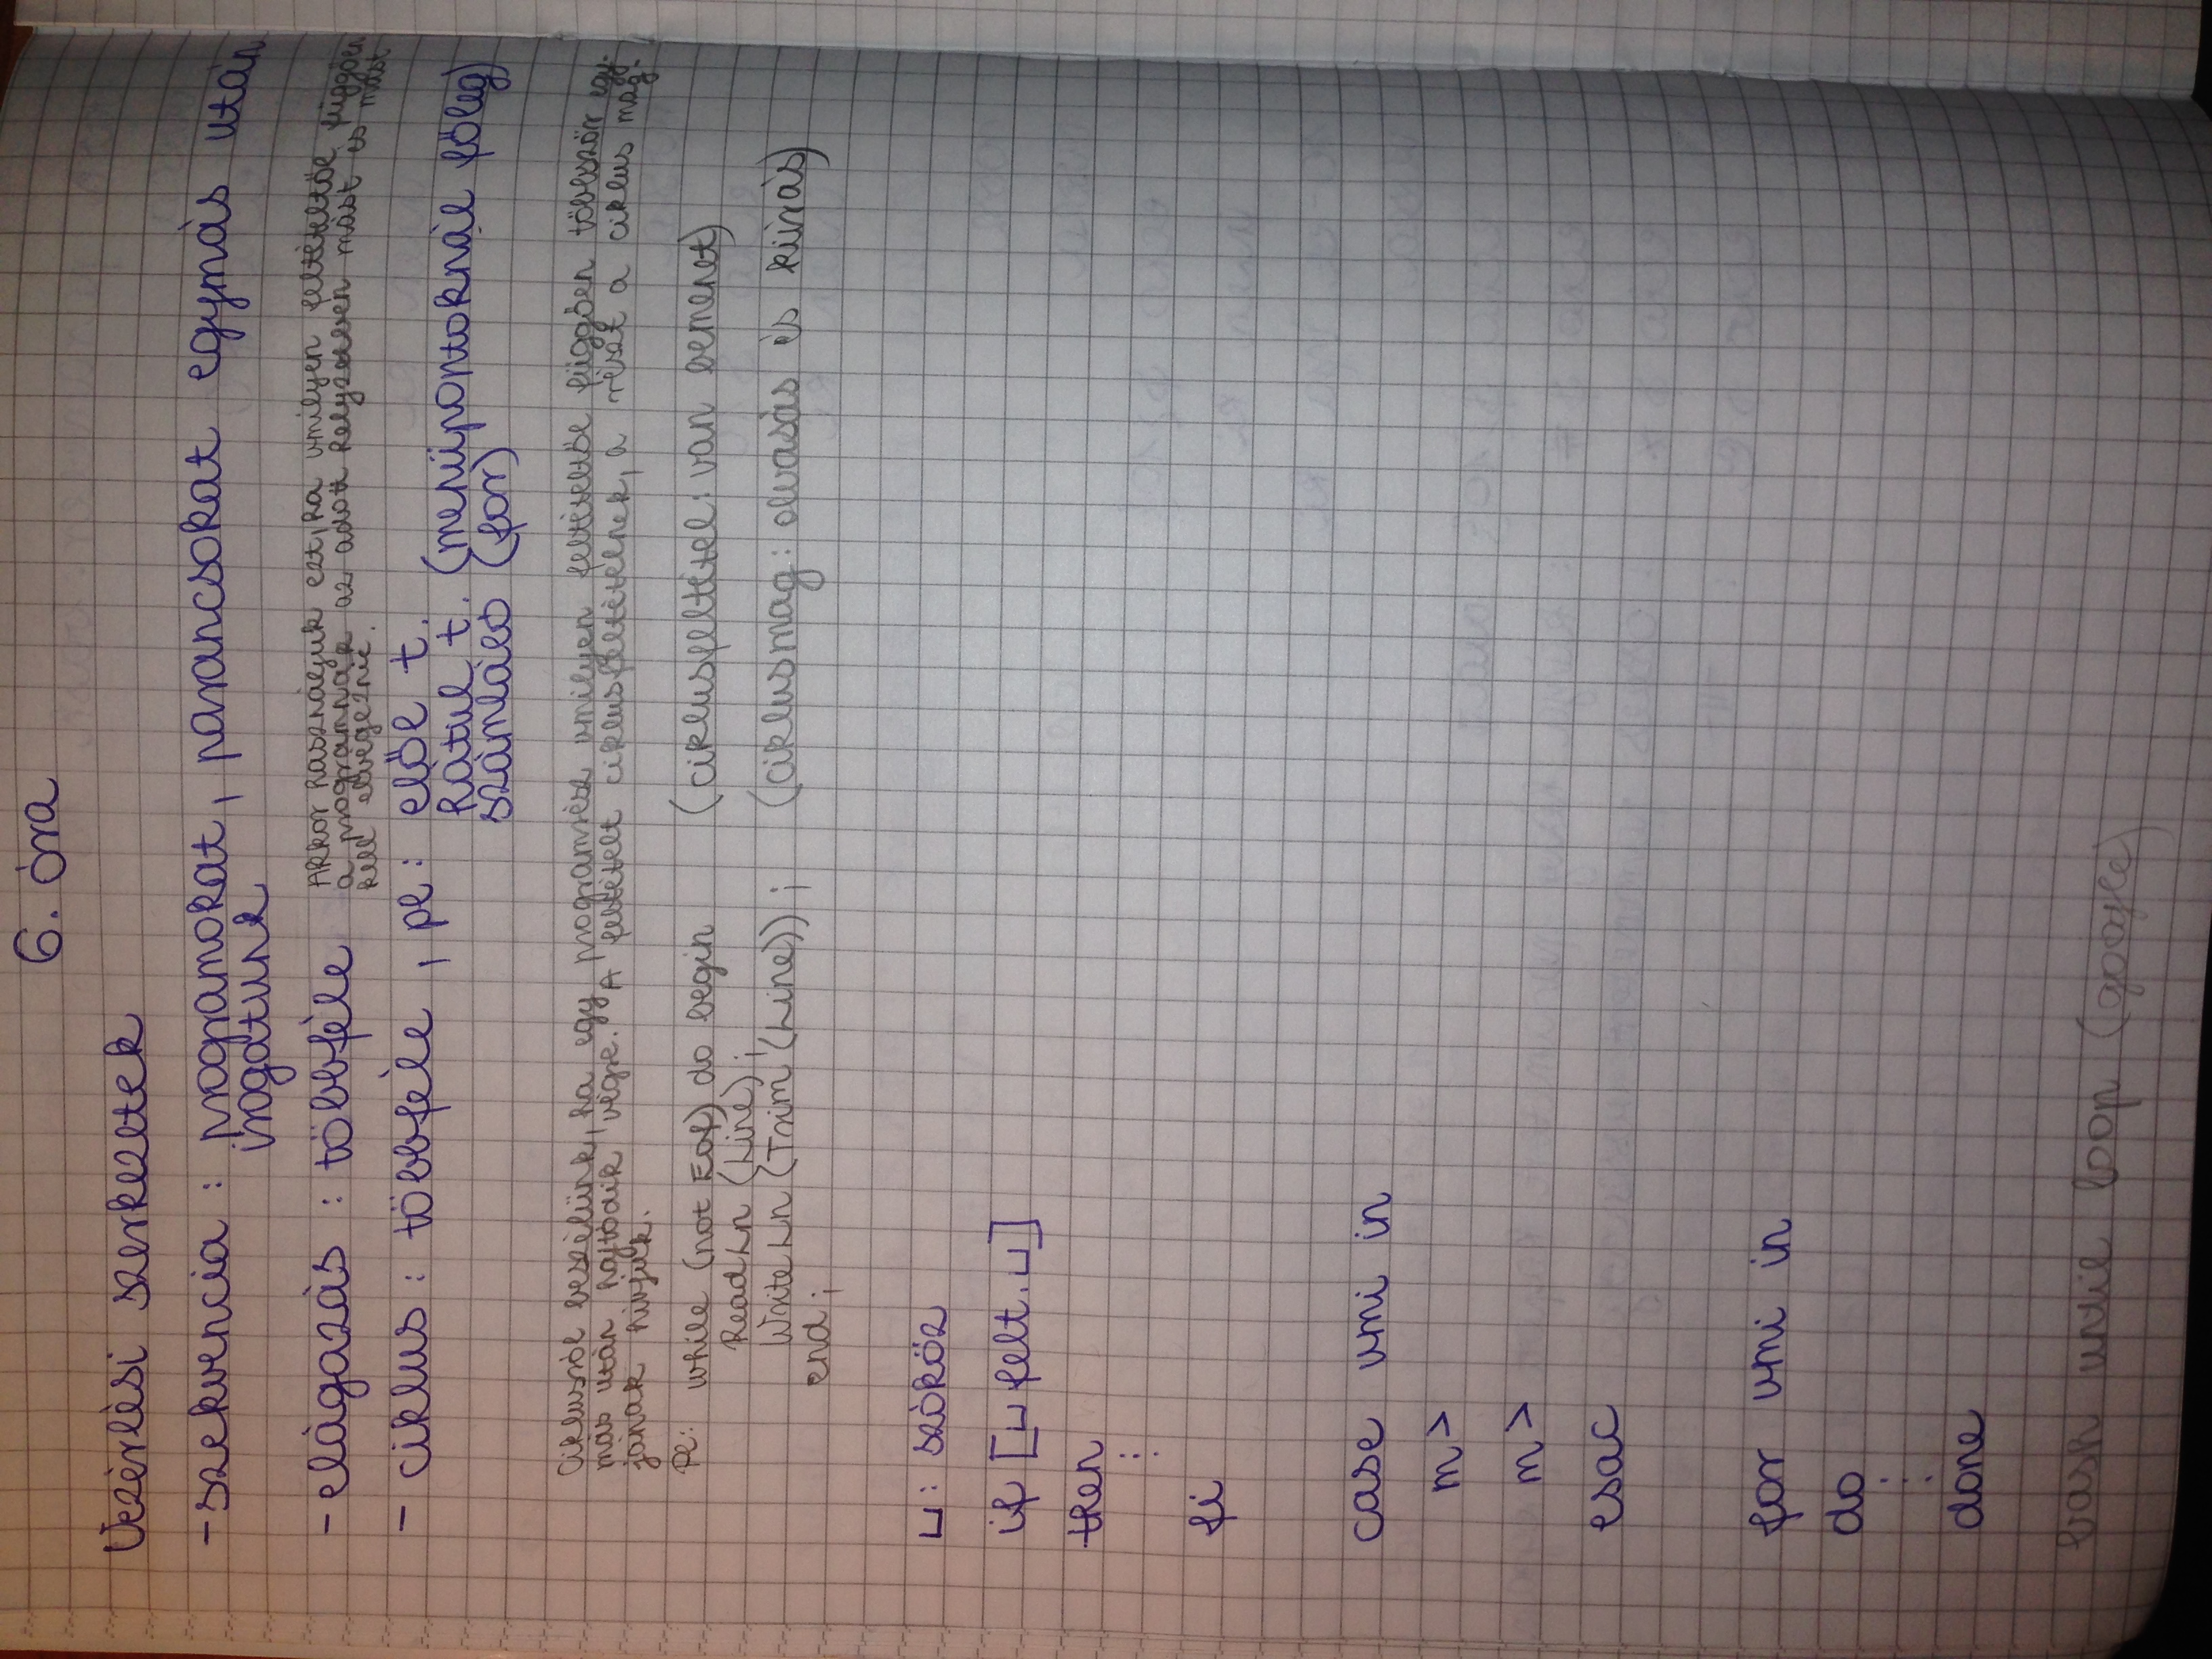 6. óra
Vezérlési szerkezetek
- szekvencia : programokat, parancsokat egymás után
irogatunk
- elágazás : többféle
Akkor használjuk ezt, ha vmilyen feltételtől függően
a programnak az adott helyzetben mást és mást
kell elvégeznie.
- ciklus : többféle, pl: elől t.
hátul t. (menüpontoknál főleg)
számláló (for)
Ciklusról beszélünk, ha egy programrész vmilyen feltételtől függően többször egy-
más után hajtódik végre. A feltételt ciklusfeltételnek, a részt a ciklus mag-
jának hívjuk.
Pl: while (not Eof) do begin (ciklusfeltétel: van bemenet)
ReadLn (Line);
WriteLn (Trim (Line)); (ciklusmag: olvasás és kiírás)
end;
⌴: szóköz
if [⌴ felt.⌴]
then
⋮
fi
case vmi in
m>
m>
esac
for vmi in
do
⋮
done
bash until loop (google)